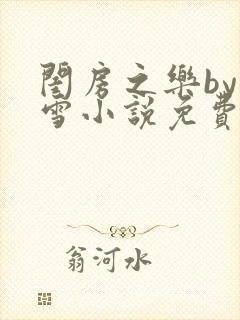 閨房之樂by
雪小說免費
翁河水